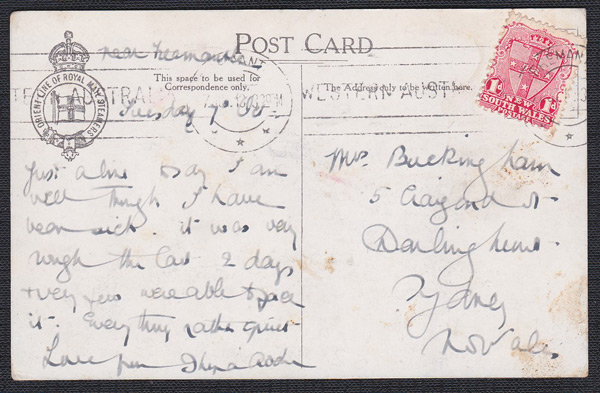 near Fremantle
POST CARD
This space to be used for
Correspondence only.
The Address only to be written here.
ORIENT LINE OF ROYAL MAIL STEAMERS
WESTERN AUST
NEW
SOUTH WALES
1D
1D
Tuesday
Just a line to say I am
well though I have
been sick. it was very
rough the last 2 days
& very few were able to face
it. Everything rather quiet
Love from
Mrs Buckingham
5 Craigend St
Darlinghurst
Sydney
N S Wales